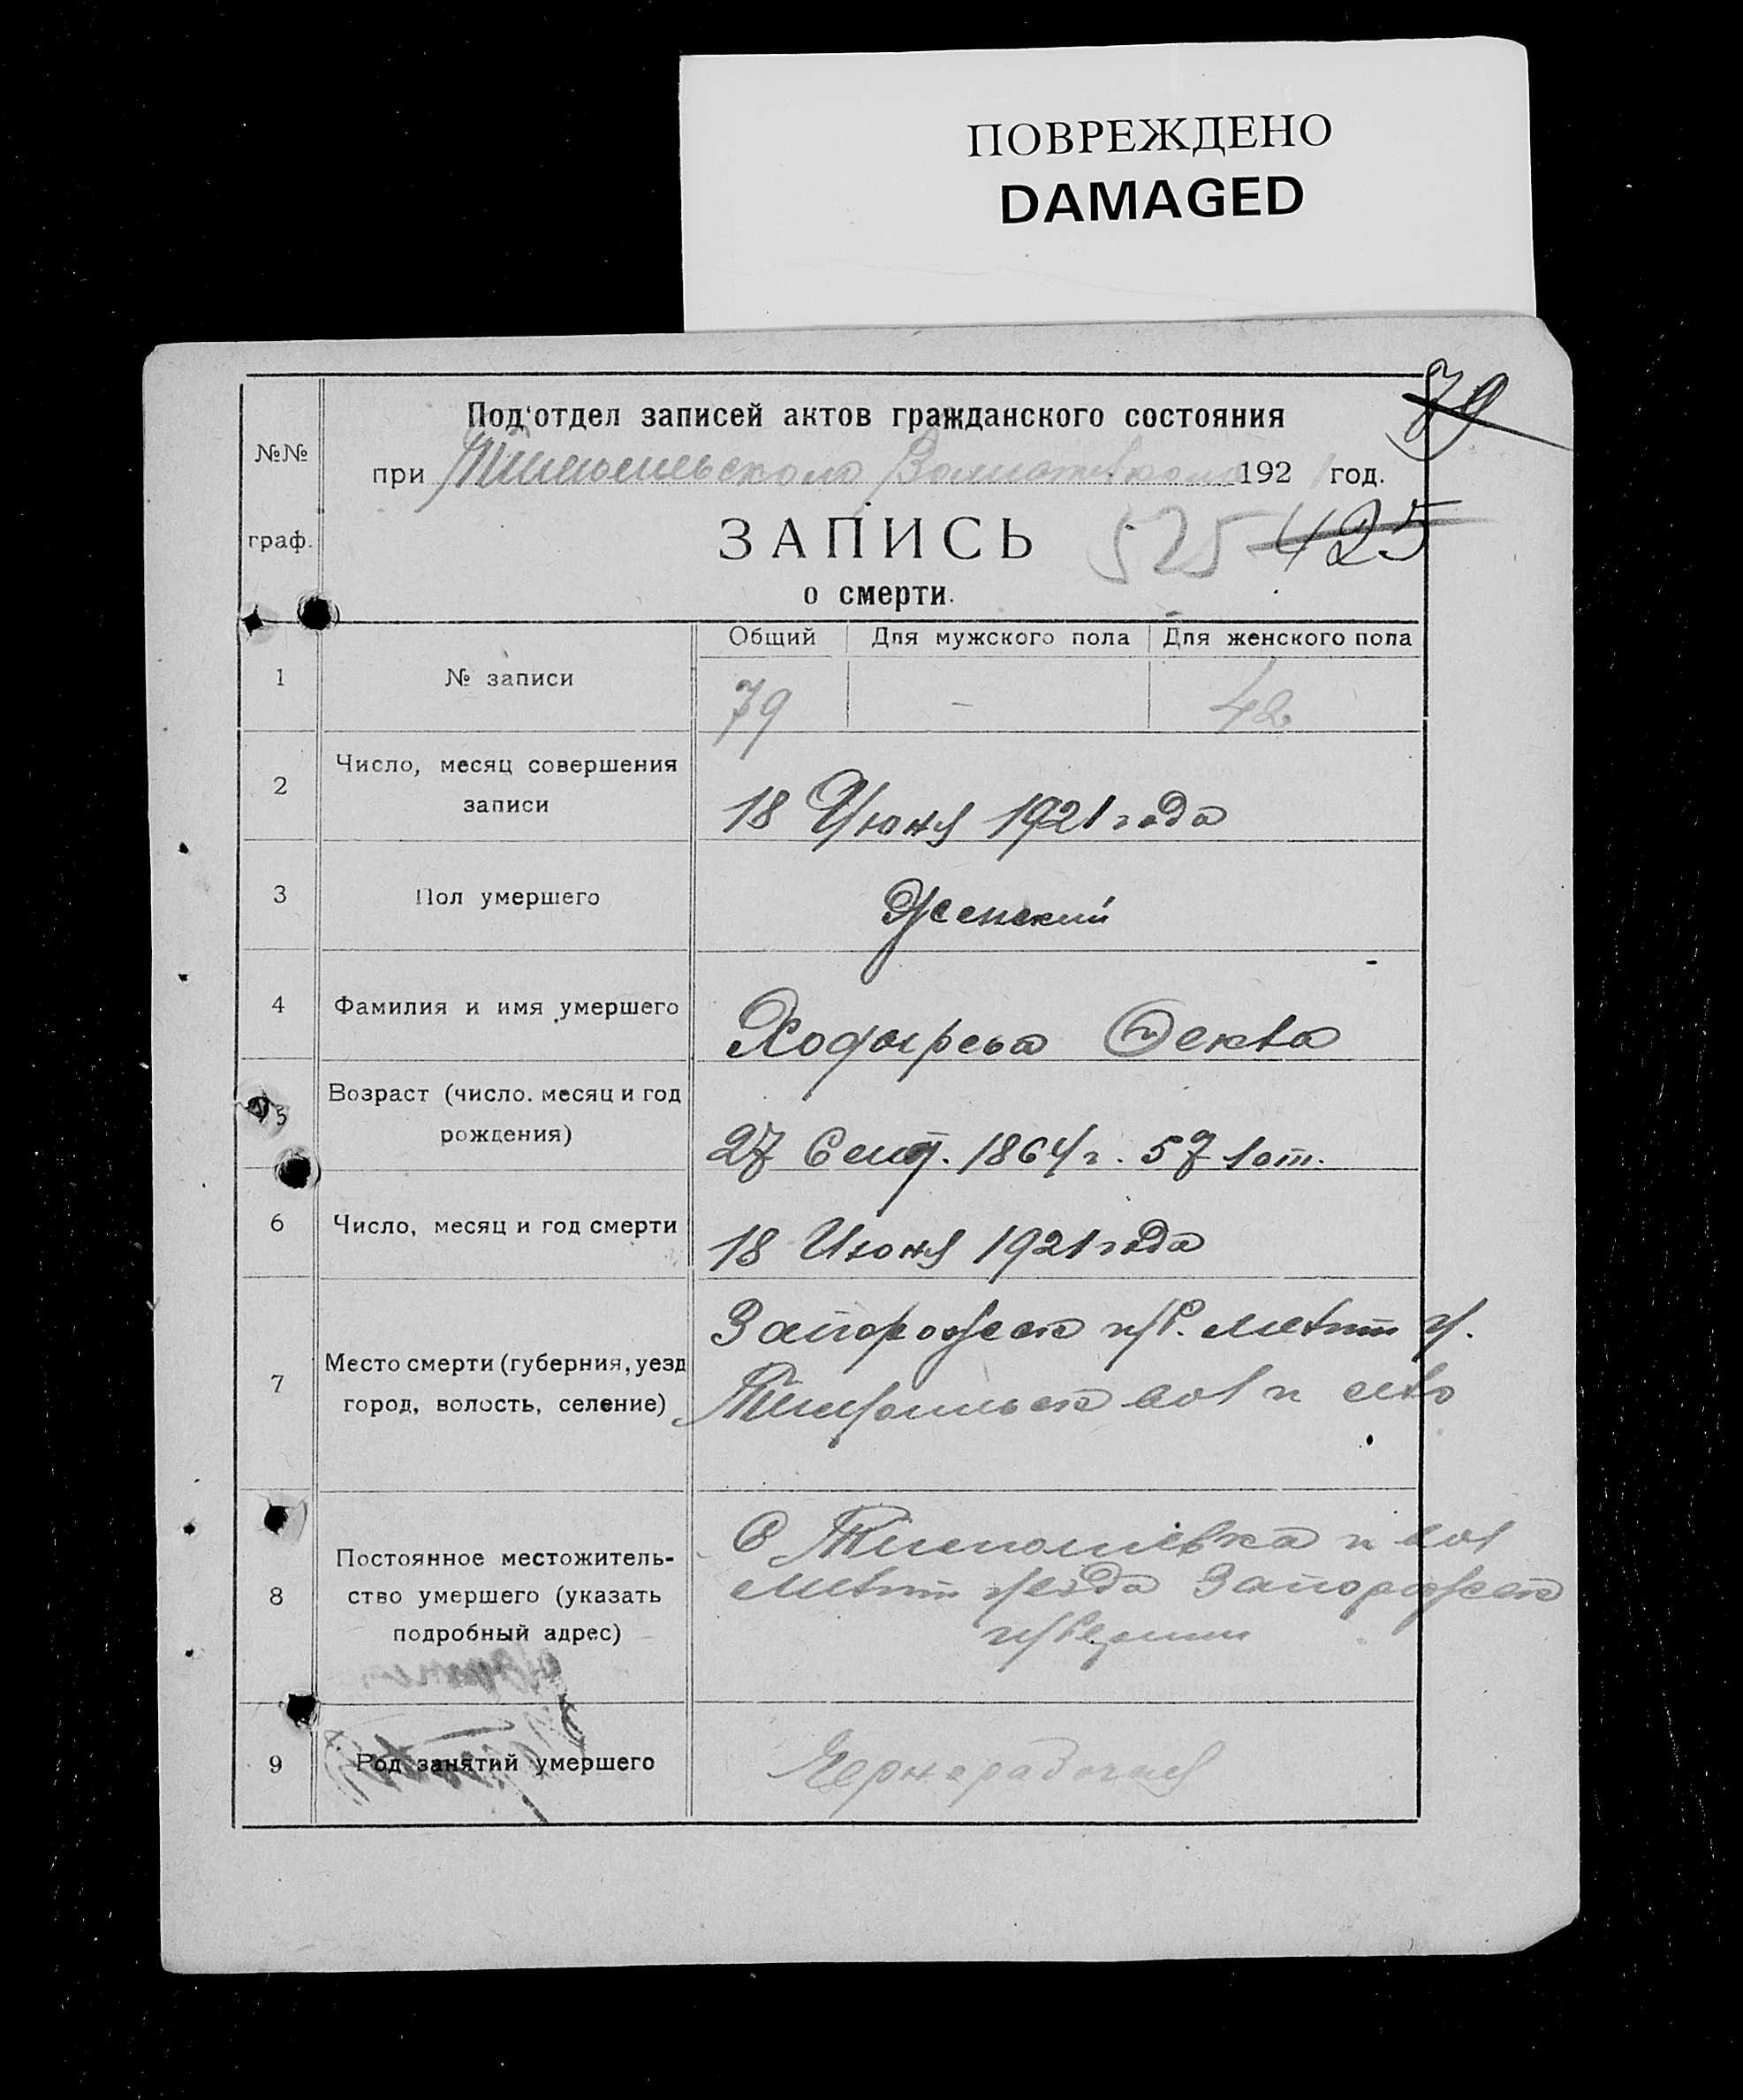 ПОВРЕЖДЕНО
DAMAGED
79
№№
граф.
Под'отдел записей актов гражданского состояния
при 1921 год.
ЗАПИСЬ 525 425
о смерти.
Общий Для мужского пола Для женского пола
1 № записи 79 - 42
2 Число, месяц совершения
записи
18 Июня 1921 года
3 Пол умершего Женский
4 Фамилия и имя умершего Ходырева Фекла
5 Возраст (число. месяц и год
рождения)
27 Сент. 1864 г. 57 лет.
6 Число, месяц и год смерти 18 Июня 1921 года
7 Место смерти (губерния, уезд
город, волость, селение)
Запорожск губ. Мелит у.
вол и село
8 Постоянное местожитель-
ство умершего (указать
подробный адрес)
С и вол
Мелит уезда Запорожск
губернии
9 Род занятий умершего Чернорабочая